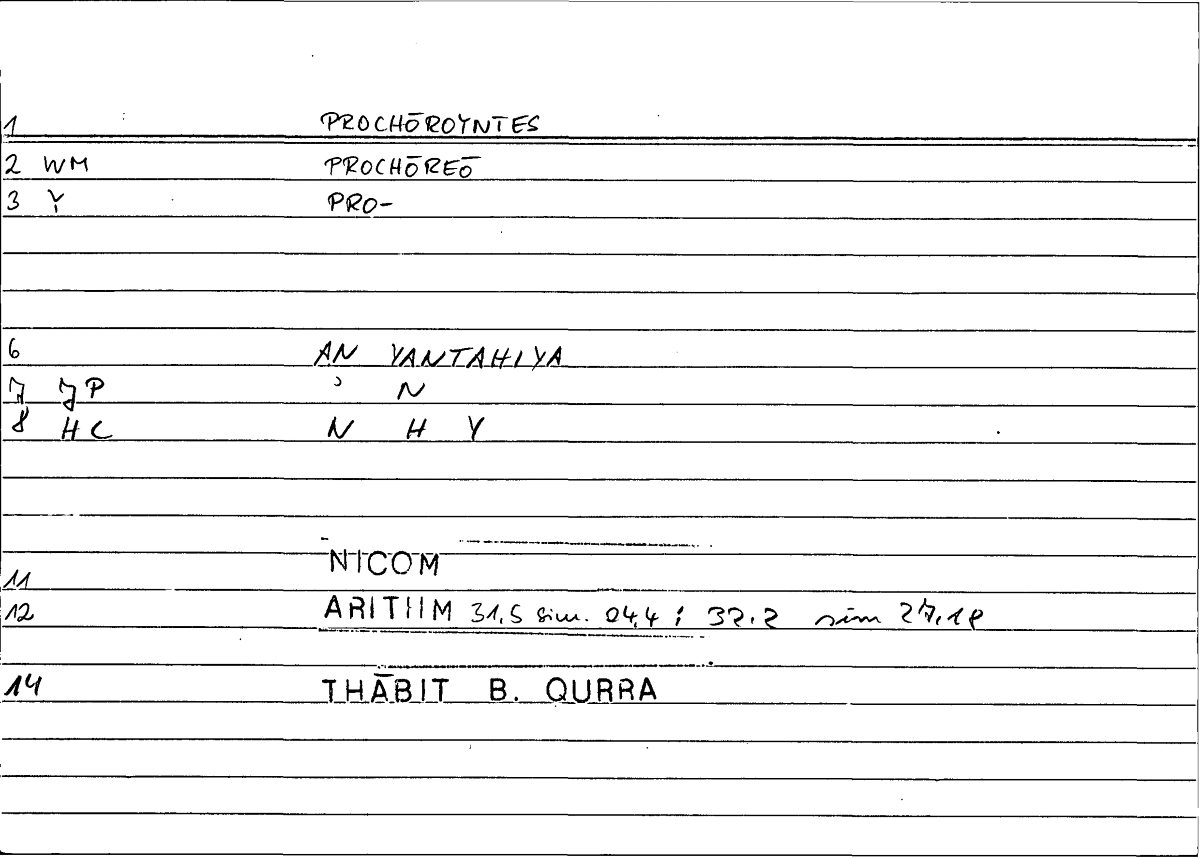 1 PROCHŌROYNTES
2 WM PROCHŌREŌ
3 Y PRO-
6 AN YANTAHIYA
7 JP ʾ N
8 HC N H Y
NICOM
11
12 ARITHM 31,5 sim. 24,4 ; 32.2 sim 27,18
14 THĀBIT B. QURRA